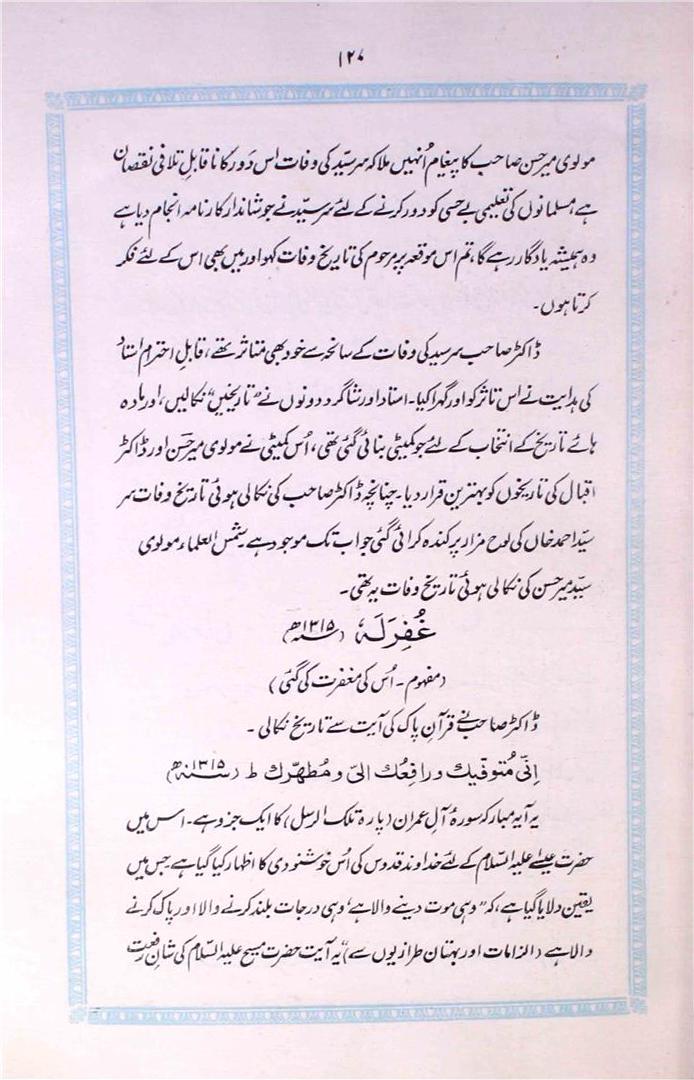 ۱۲۰
مولوی میر حسن صاحب کا پیغام اُنہیں ملا کہ سر سیّد کی وفات اس دَور کا ناقابلِ تلافی نقصان
ہے مسلمانوں کی تعلیمی بے حسی کو دور کرنے کے لئے سر سیّد نے جو شاندار کارنامہ انجام دیا ہے
وہ ہمیشہ یادگار رہے گا، تم اس موقعہ پر مرحوم کی تاریخِ وفات کہو اور میں بھی اس کے لئے فکر
کرتا ہوں۔
ڈاکٹر صاحب سر سید کی وفات کے سانحہ سے خود بھی متاثر تھے، قابلِ احترام استاد
کی ہدایت نے اس تاثر کو اور گہرا کیا۔ استاد اور شاگرد دونوں نے ”تاریخیں“ نکالیں، اور مادہ
ہائے تاریخ کے انتخاب کے لئے جو کمیٹی بنائی گئی تھی، اُس کمیٹی نے مولوی میر حسن اور ڈاکٹر
اقبال کی تاریخوں کو بہترین قرار دیا۔ چنانچہ ڈاکٹر صاحب کی نکالی ہوئی تاریخ وفات سر
سیّد احمد خاں کی لوح مزار پر کندہ کرائی گئی جو اب تک موجود ہے۔ شمس العلماء مولوی
سیّد میر حسن کی نکالی ہوئی تاریخ وفات یہ تھی۔
غُفِرَلَہٗ (سنہ ۱۳۱۵ھ)
(مفہوم۔ اُس کی مغفرت کی گئی)
ڈاکٹر صاحب نے قرآنِ پاک کی آیت سے تاریخ نکالی۔
اِنّی مُتوفّیك ورافعُك الیّ و مُطھّرك ط (سنہ ۱۳۱۵ھ)
یہ آیہ مبارکہ سورۂ آلِ عمران (پارہ تلک الرسل) کا ایک جزو ہے۔ اس میں
حضرت عیسےٰ علیہ السّلام کے لئے خداوند قدوس کی اُس خوشنودی کا اظہار کیا گیا ہے جس میں
یقین دلایا گیا ہے، کہ ”وہی موت دینے والا ہے وہی درجات بلند کرنے والا اور پاک کرنے
والا ہے (الزامات اور بہتان طرازیوں سے)“ یہ آیت حضرت مسیح علیہ السّلام کی شانِ رفعت